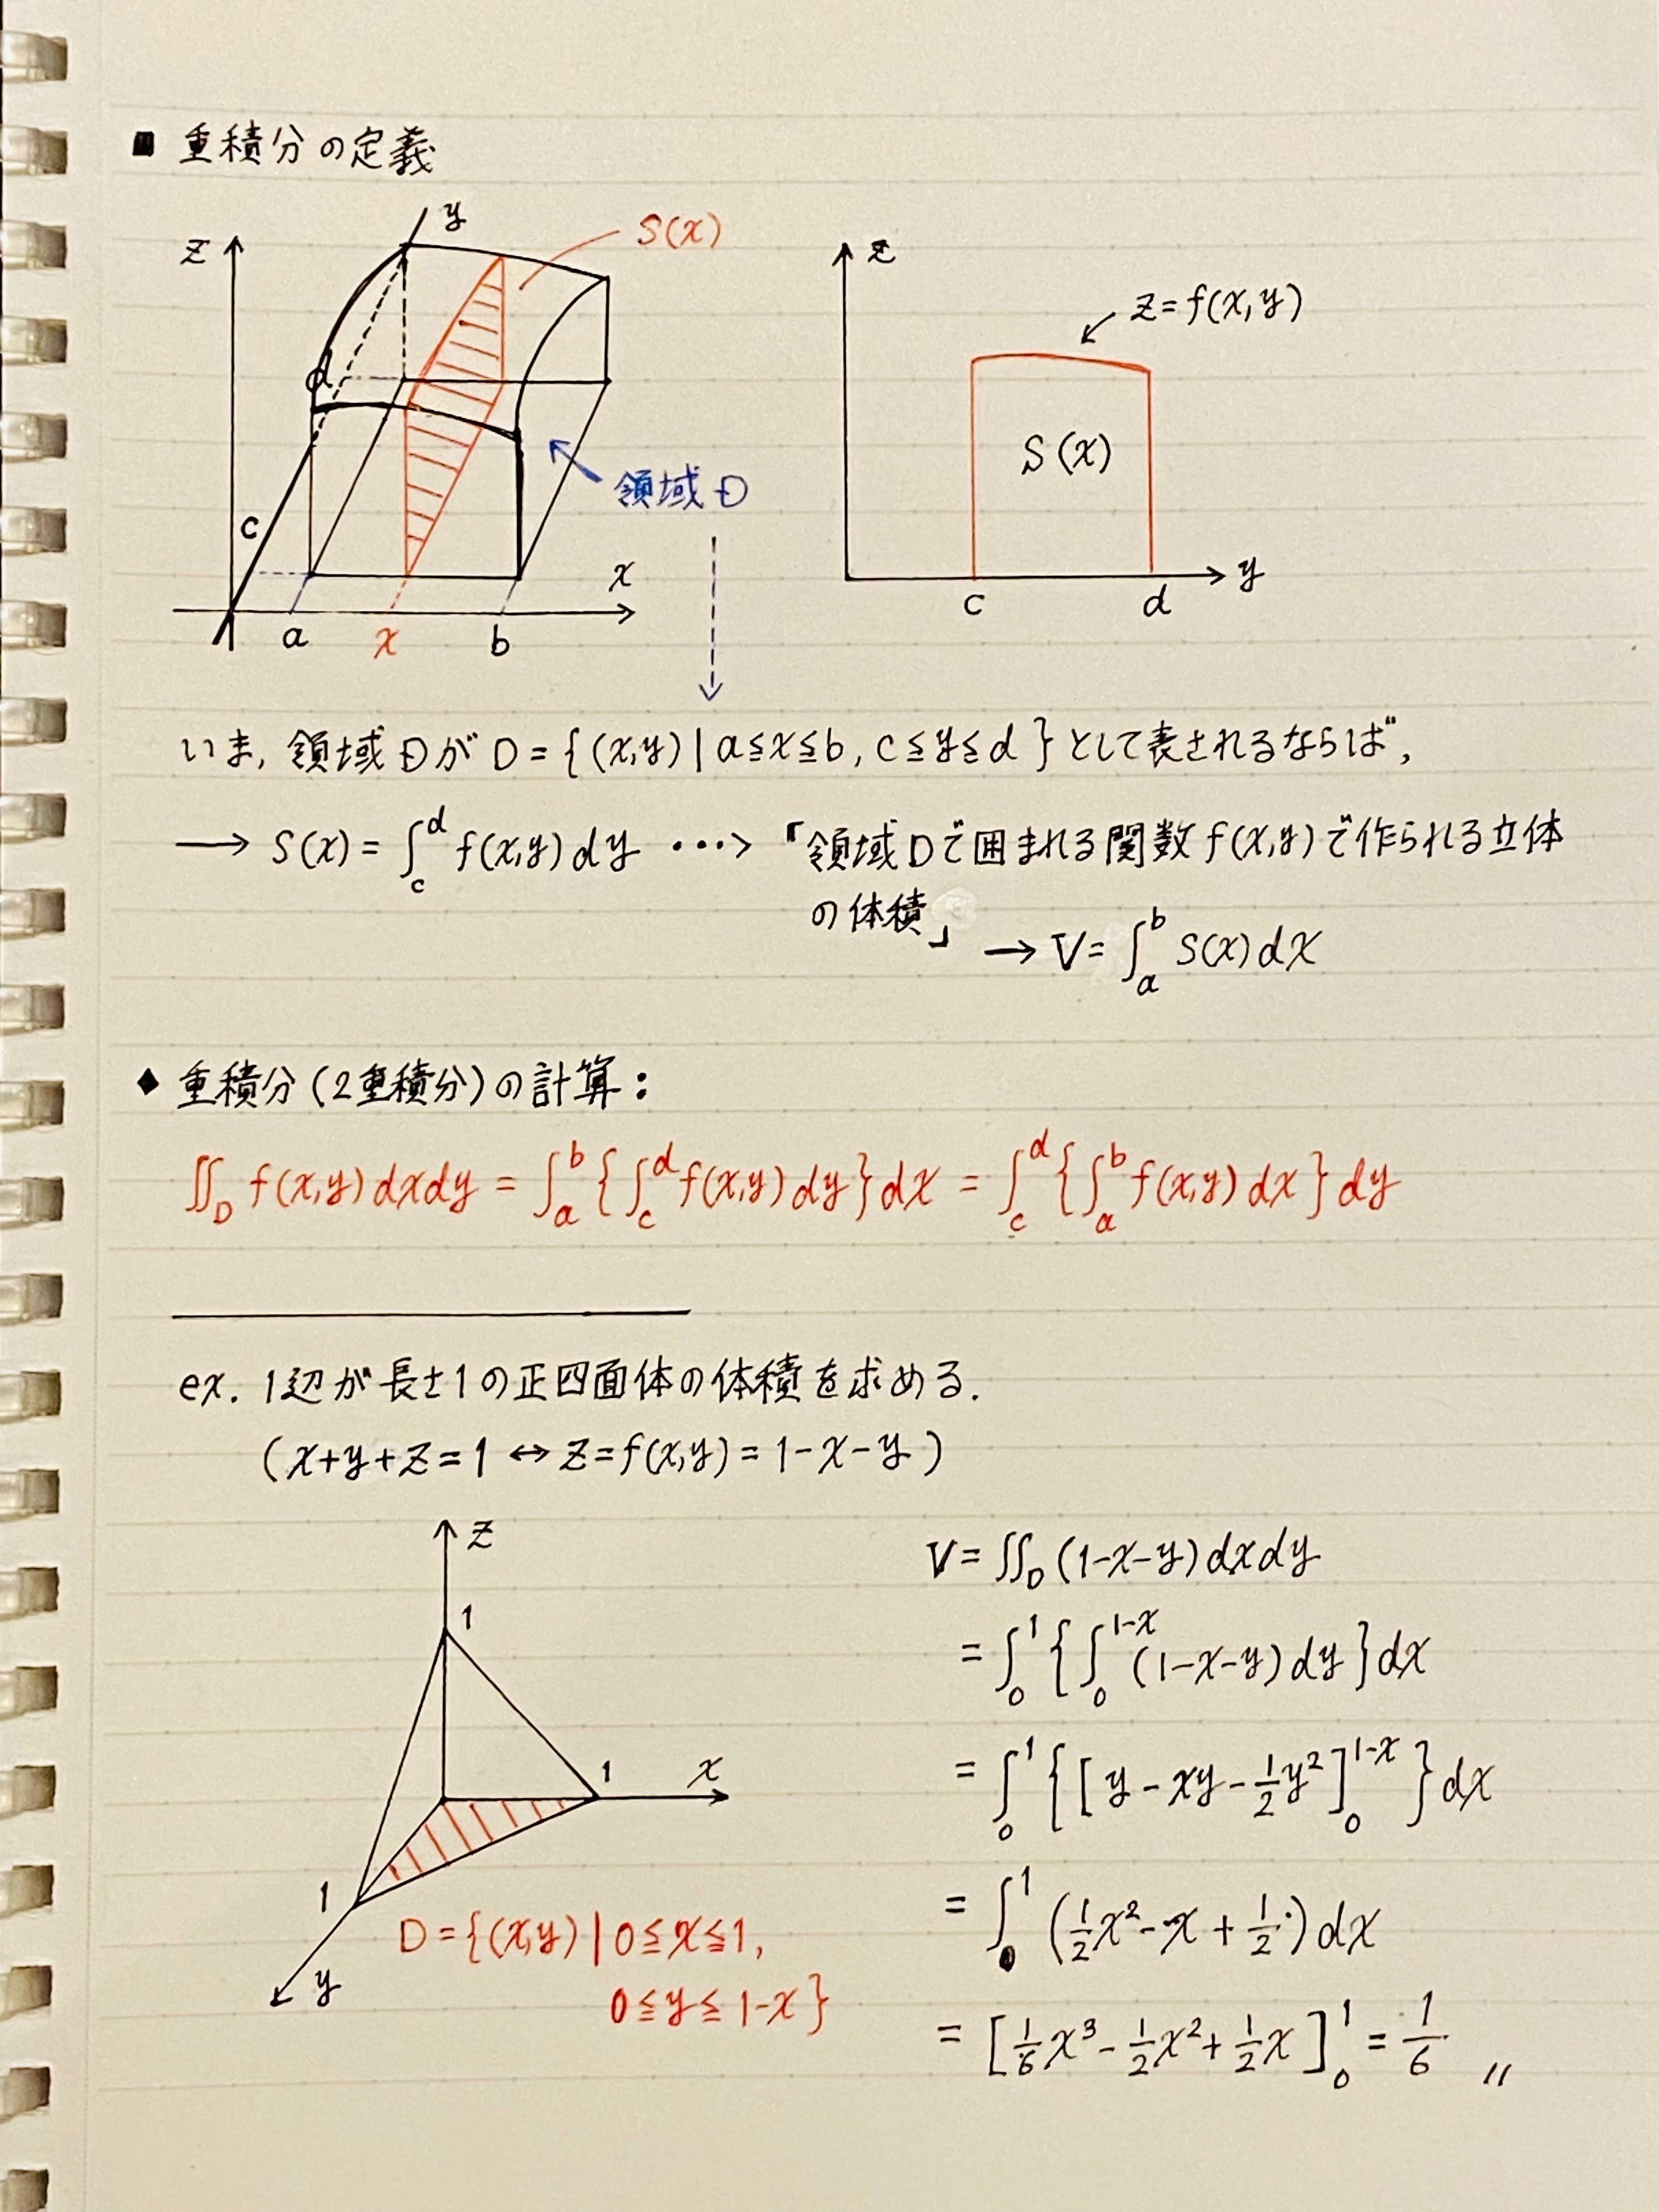 ■ 重積分の定義
z
y
S(x)
d
c
領域D
x
a
x
b
z
z=f(x,y)
S(x)
c
d
y
いま, 領域DがD={(x,y)|a≦x≦b, c≦y≦d}として表されるならば,
→ S(x)=∫_c^d f(x,y)dy ・・・> 「領域Dで囲まれる関数f(x,y)で作られる立体
の体積」 → V=∫_a^b S(x)dx
◆ 重積分(2重積分)の計算:
∬_D f(x,y)dxdy = ∫_a^b{∫_c^d f(x,y)dy}dx = ∫_c^d{∫_a^b f(x,y)dx}dy
ex. 1辺が長さ1の正四面体の体積を求める.
(x+y+z=1 ↔ z=f(x,y)=1-x-y)
z
1
1
x
1
y
D={(x,y)|0≦x≦1,
0≦y≦1-x}
V=∬_D(1-x-y)dxdy
=∫_0^1{∫_0^{1-x}(1-x-y)dy}dx
=∫_0^1{[y-xy-1/2y²]_0^{1-x}}dx
=∫_0^1(1/2x²-x+1/2)dx
=[1/6x³-1/2x²+1/2x]_0^1=1/6 〃